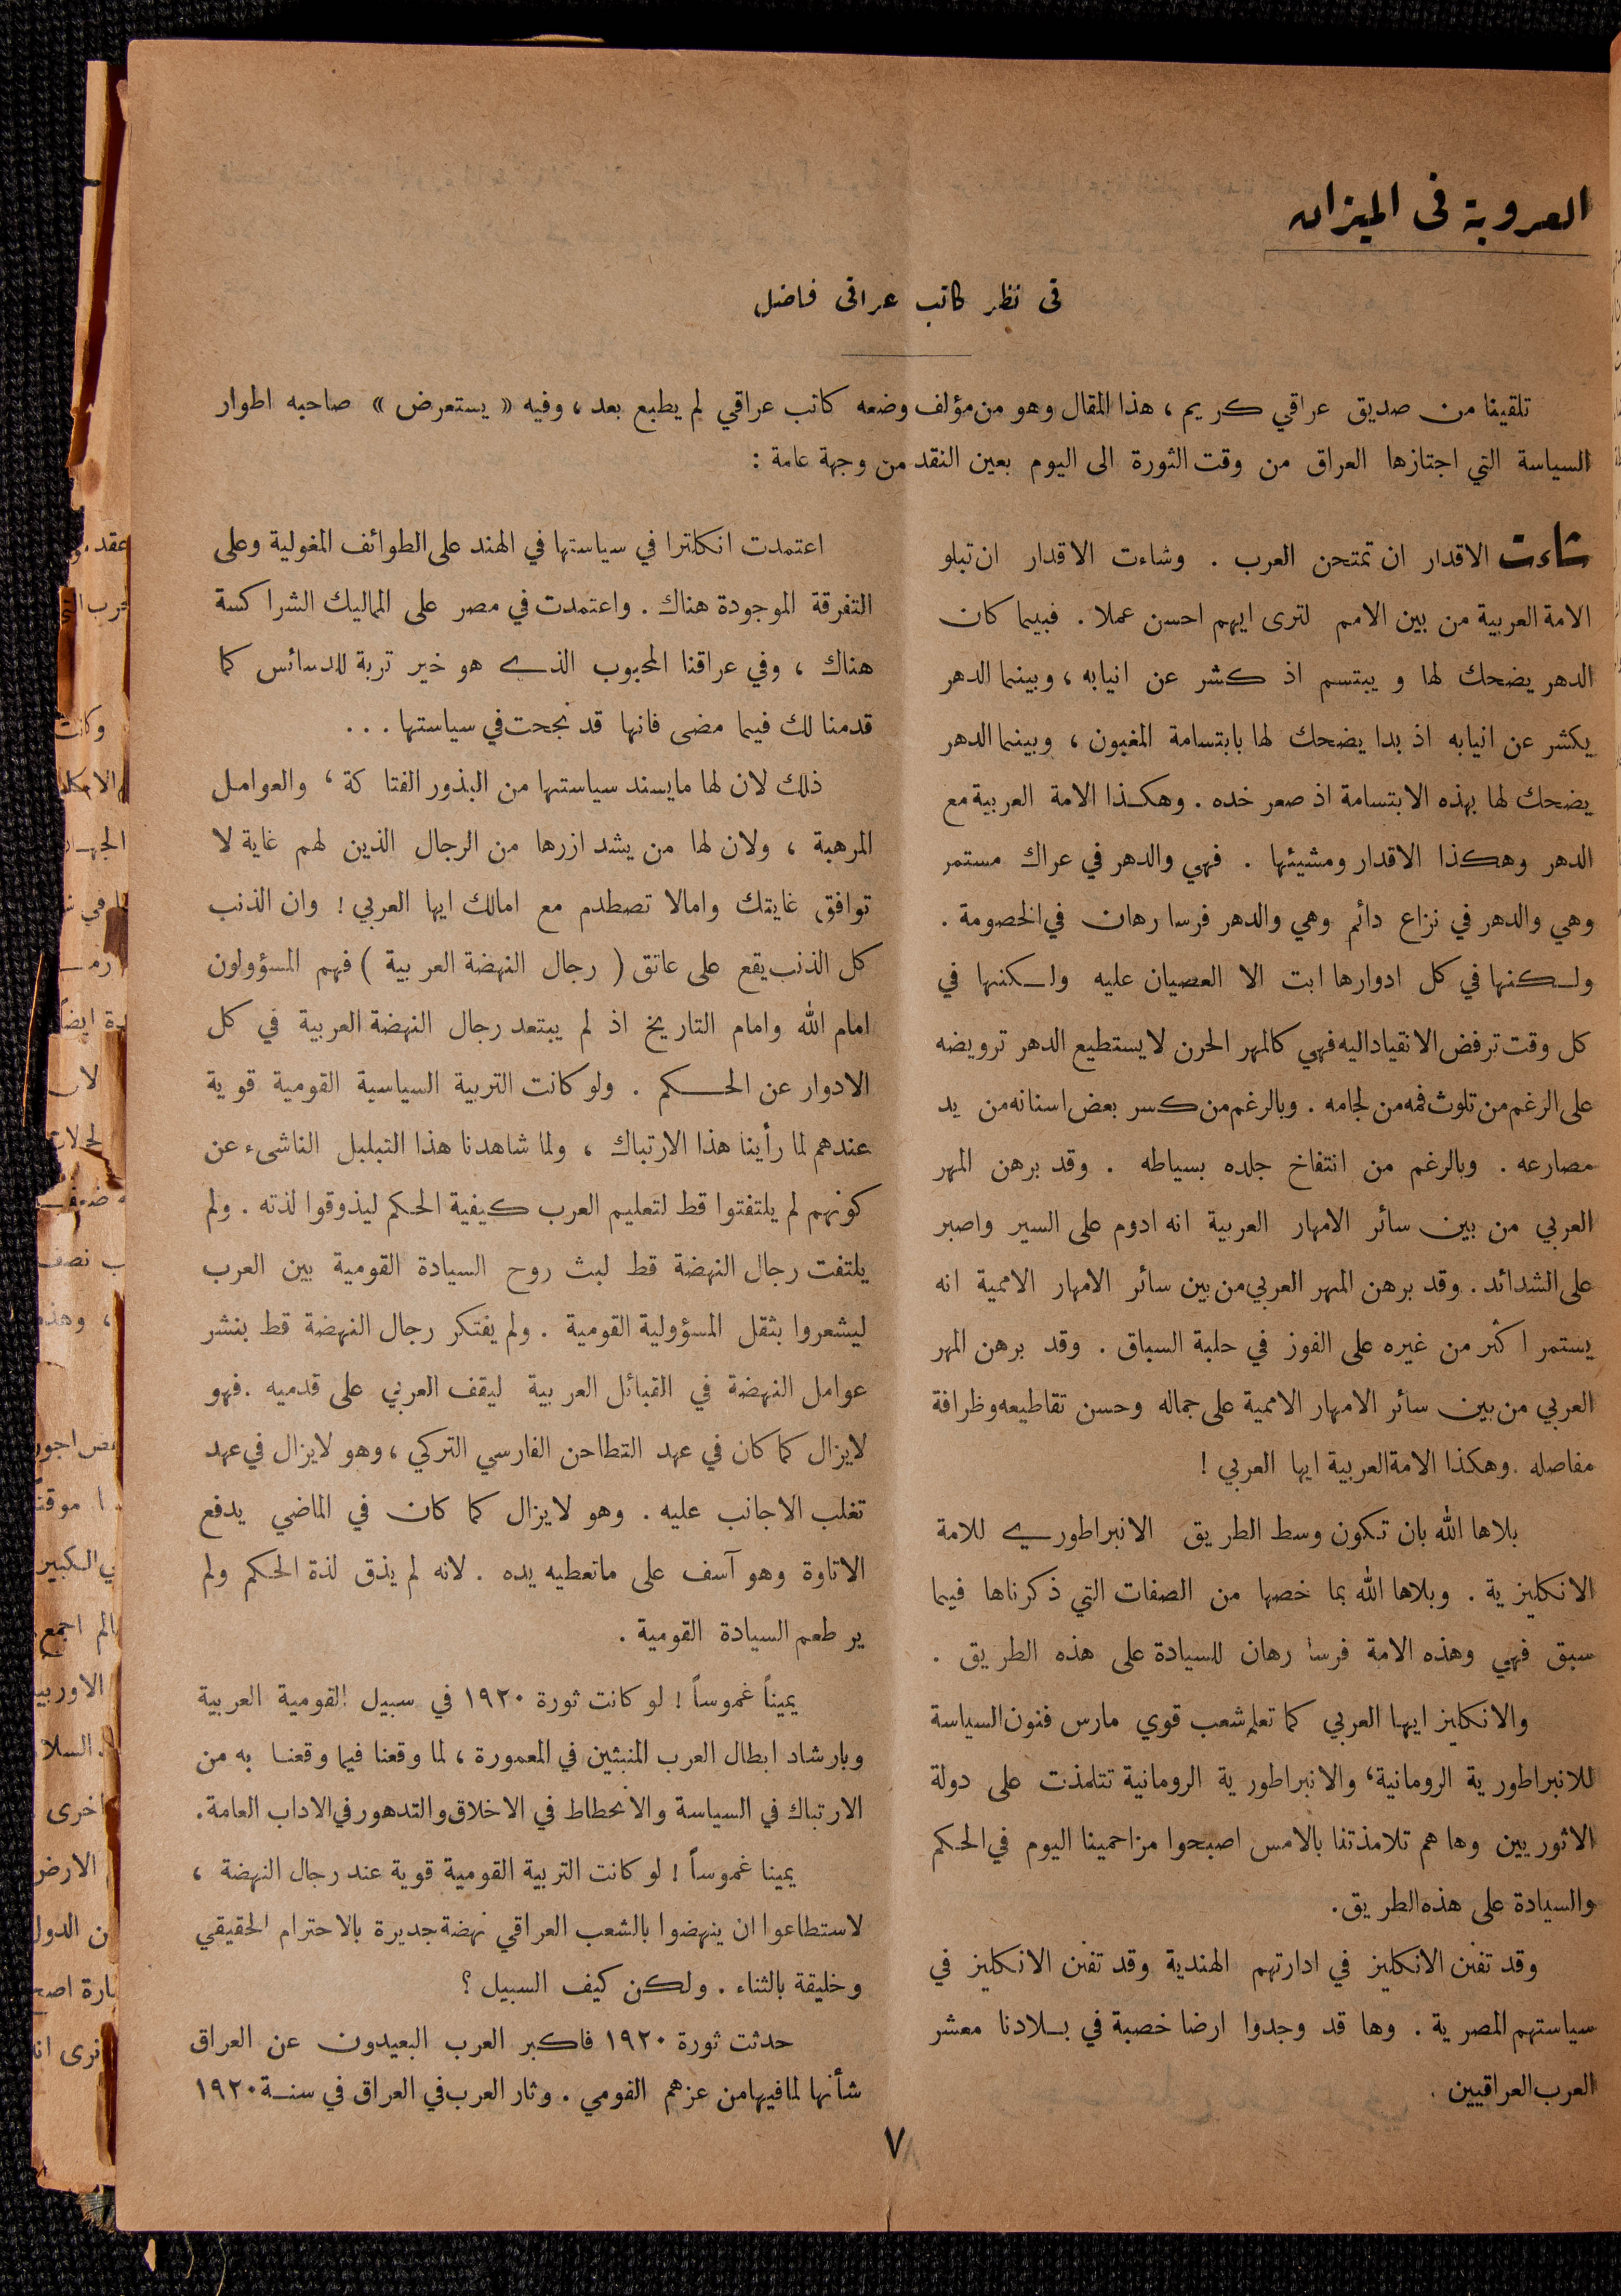 العروبة في الميزان
في نظر كاتب عراقي فاضل
تلقينا من صديق عراقي كريم ، هذا المقال وهو من مؤلف وضعه كاتب عراقي لم يطبع بعد ، وفيه « يستعرض » صاحبه اطوار
السياسة التي اجتازها العراق من وقت الثورة الى اليوم بعين النقد من وجهة عامة :
شاءت الاقدار ان تمتحن العرب . وشاءت الاقدار ان تبلو
الامة العربية من بين الامم لترى ايهم احسن عملا . فبينما كان
الدهر يضحك لها و يبتسم اذ كشر عن انيابه ، وبينما الدهر
يكشر عن انيابه اذ بدا يضحك لها بابتسامة المغبون ، وبينما الدهر
يضحك لها بهذه الابتسامة اذ صعر خده . وهكذا الامة العربية مع
الدهر وهكذا الاقدار ومشيئها . فهي والدهر في عراك مستمر
وهي والدهر في نزاع دائم وهي والدهر فرسا رهان في الخصومة .
ولكنها في كل ادوارها ابت الا العصيان عليه ولكنها في
كل وقت ترفض الانقياد اليه فهي كالمهر الحرن لا يستطيع الدهر ترويضه
على الرغم من تلوث فمه من لجامه . وبالرغم من كسر بعض اسنانه من يد
مصارعه . وبالرغم من انتفاخ جلده بسياطه . وقد برهن المهر
العربي من بين سائر الامهار العربية انه ادوم على السير واصبر
على الشدائد . وقد برهن المهر العربي من بين سائر الامهار الاممية انه
يستمر اكثر من غيره على الفوز في حلبة السباق . وقد برهن المهر
العربي من بين سائر الامهار الاممية على جماله وحسن تقاطيعه وظرافة
مفاصله . وهكذا الامة العربية ايها العربي !
بلاها الله بان تكون وسط الطريق الانبراطوري للامة
الانكليزية . وبلاها الله بما خصها من الصفات التي ذكرناها فيما
سبق فهي وهذه الامة فرسا رهان للسيادة على هذه الطريق .
والانكليز ايها العربي كما تعلم شعب قوي مارس فنون السياسة
للانبراطورية الرومانية ، والانبراطورية الرومانية تتلمذت على دولة
الاثوريين وها هم تلامذتنا بالامس اصبحوا مزاحمينا اليوم في الحكم
والسيادة على هذه الطريق .
وقد تفنن الانكليز في ادارتهم الهندية وقد تفنن الانكليز في
سياستهم المصرية . وها قد وجدوا ارضا خصبة في بلادنا معشر
العرب العراقيين .
اعتمدت انكلترا في سياستها في الهند على الطوائف المغولية وعلى
التفرقة الموجودة هناك . واعتمدت في مصر على المماليك الشراكسة
هناك ، وفي عراقنا المحبوب الذي هو خير تربة للدسائس كما
قدمنا لك فيما مضى فانها قد نجحت في سياستها . . .
ذلك لان لها مايسند سياستها من البذور الفتاكة ، والعوامل
المرهبة ، ولان لها من يشد ازرها من الرجال الذين لهم غاية لا
توافق غايتك وامالا تصطدم مع امالك ايها العربي ! وان الذنب
كل الذنب يقع على عاتق ( رجال النهضة العربية ) فهم المسؤولون
امام الله وامام التاريخ اذ لم يبتعد رجال النهضة العربية في كل
الادوار عن الحكم . ولو كانت التربية السياسية القومية قوية
عندهم لما رأينا هذا الارتباك ، ولما شاهدنا هذا التبلبل الناشىء عن
كونهم لم يلتفتوا قط لتعليم العرب كيفية الحكم ليذوقوا لذته . ولم
يلتفت رجال النهضة قط لبث روح السيادة القومية بين العرب
ليشعروا بثقل المسؤولية القومية . ولم يفتكر رجال النهضة قط بنشر
عوامل النهضة في القبائل العربية ليقف العربي على قدميه . فهو
لايزال كما كان في عهد التطاحن الفارسي التركي ، وهو لايزال في عهد
تغلب الاجانب عليه . وهو لايزال كما كان في الماضي يدفع
الاتاوة وهو آسف على ماتعطيه يده . لانه لم يذق لذة الحكم ولم
ير طعم السيادة القومية .
يميناً غموساً ! لو كانت ثورة ١٩٢٠ في سبيل القومية العربية
وبارشاد ابطال العرب المنبثين في المعمورة ، لما وقعنا فيما وقعنا به من
الارتباك في السياسة والانحطاط في الاخلاق والتدهور في الاداب العامة .
يمينا غموساً ! لو كانت التربية القومية قوية عند رجال النهضة ،
لاستطاعوا ان ينهضوا بالشعب العراقي نهضة جديرة بالاحترام الحقيقي
وخليقة بالثناء . ولكن كيف السبيل ؟
حدثت ثورة ١٩٢٠ فاكبر العرب البعيدون عن العراق
شأنها لمافيها من عزهم القومي . وثار العرب في العراق في سنة ١٩٢٠
٧